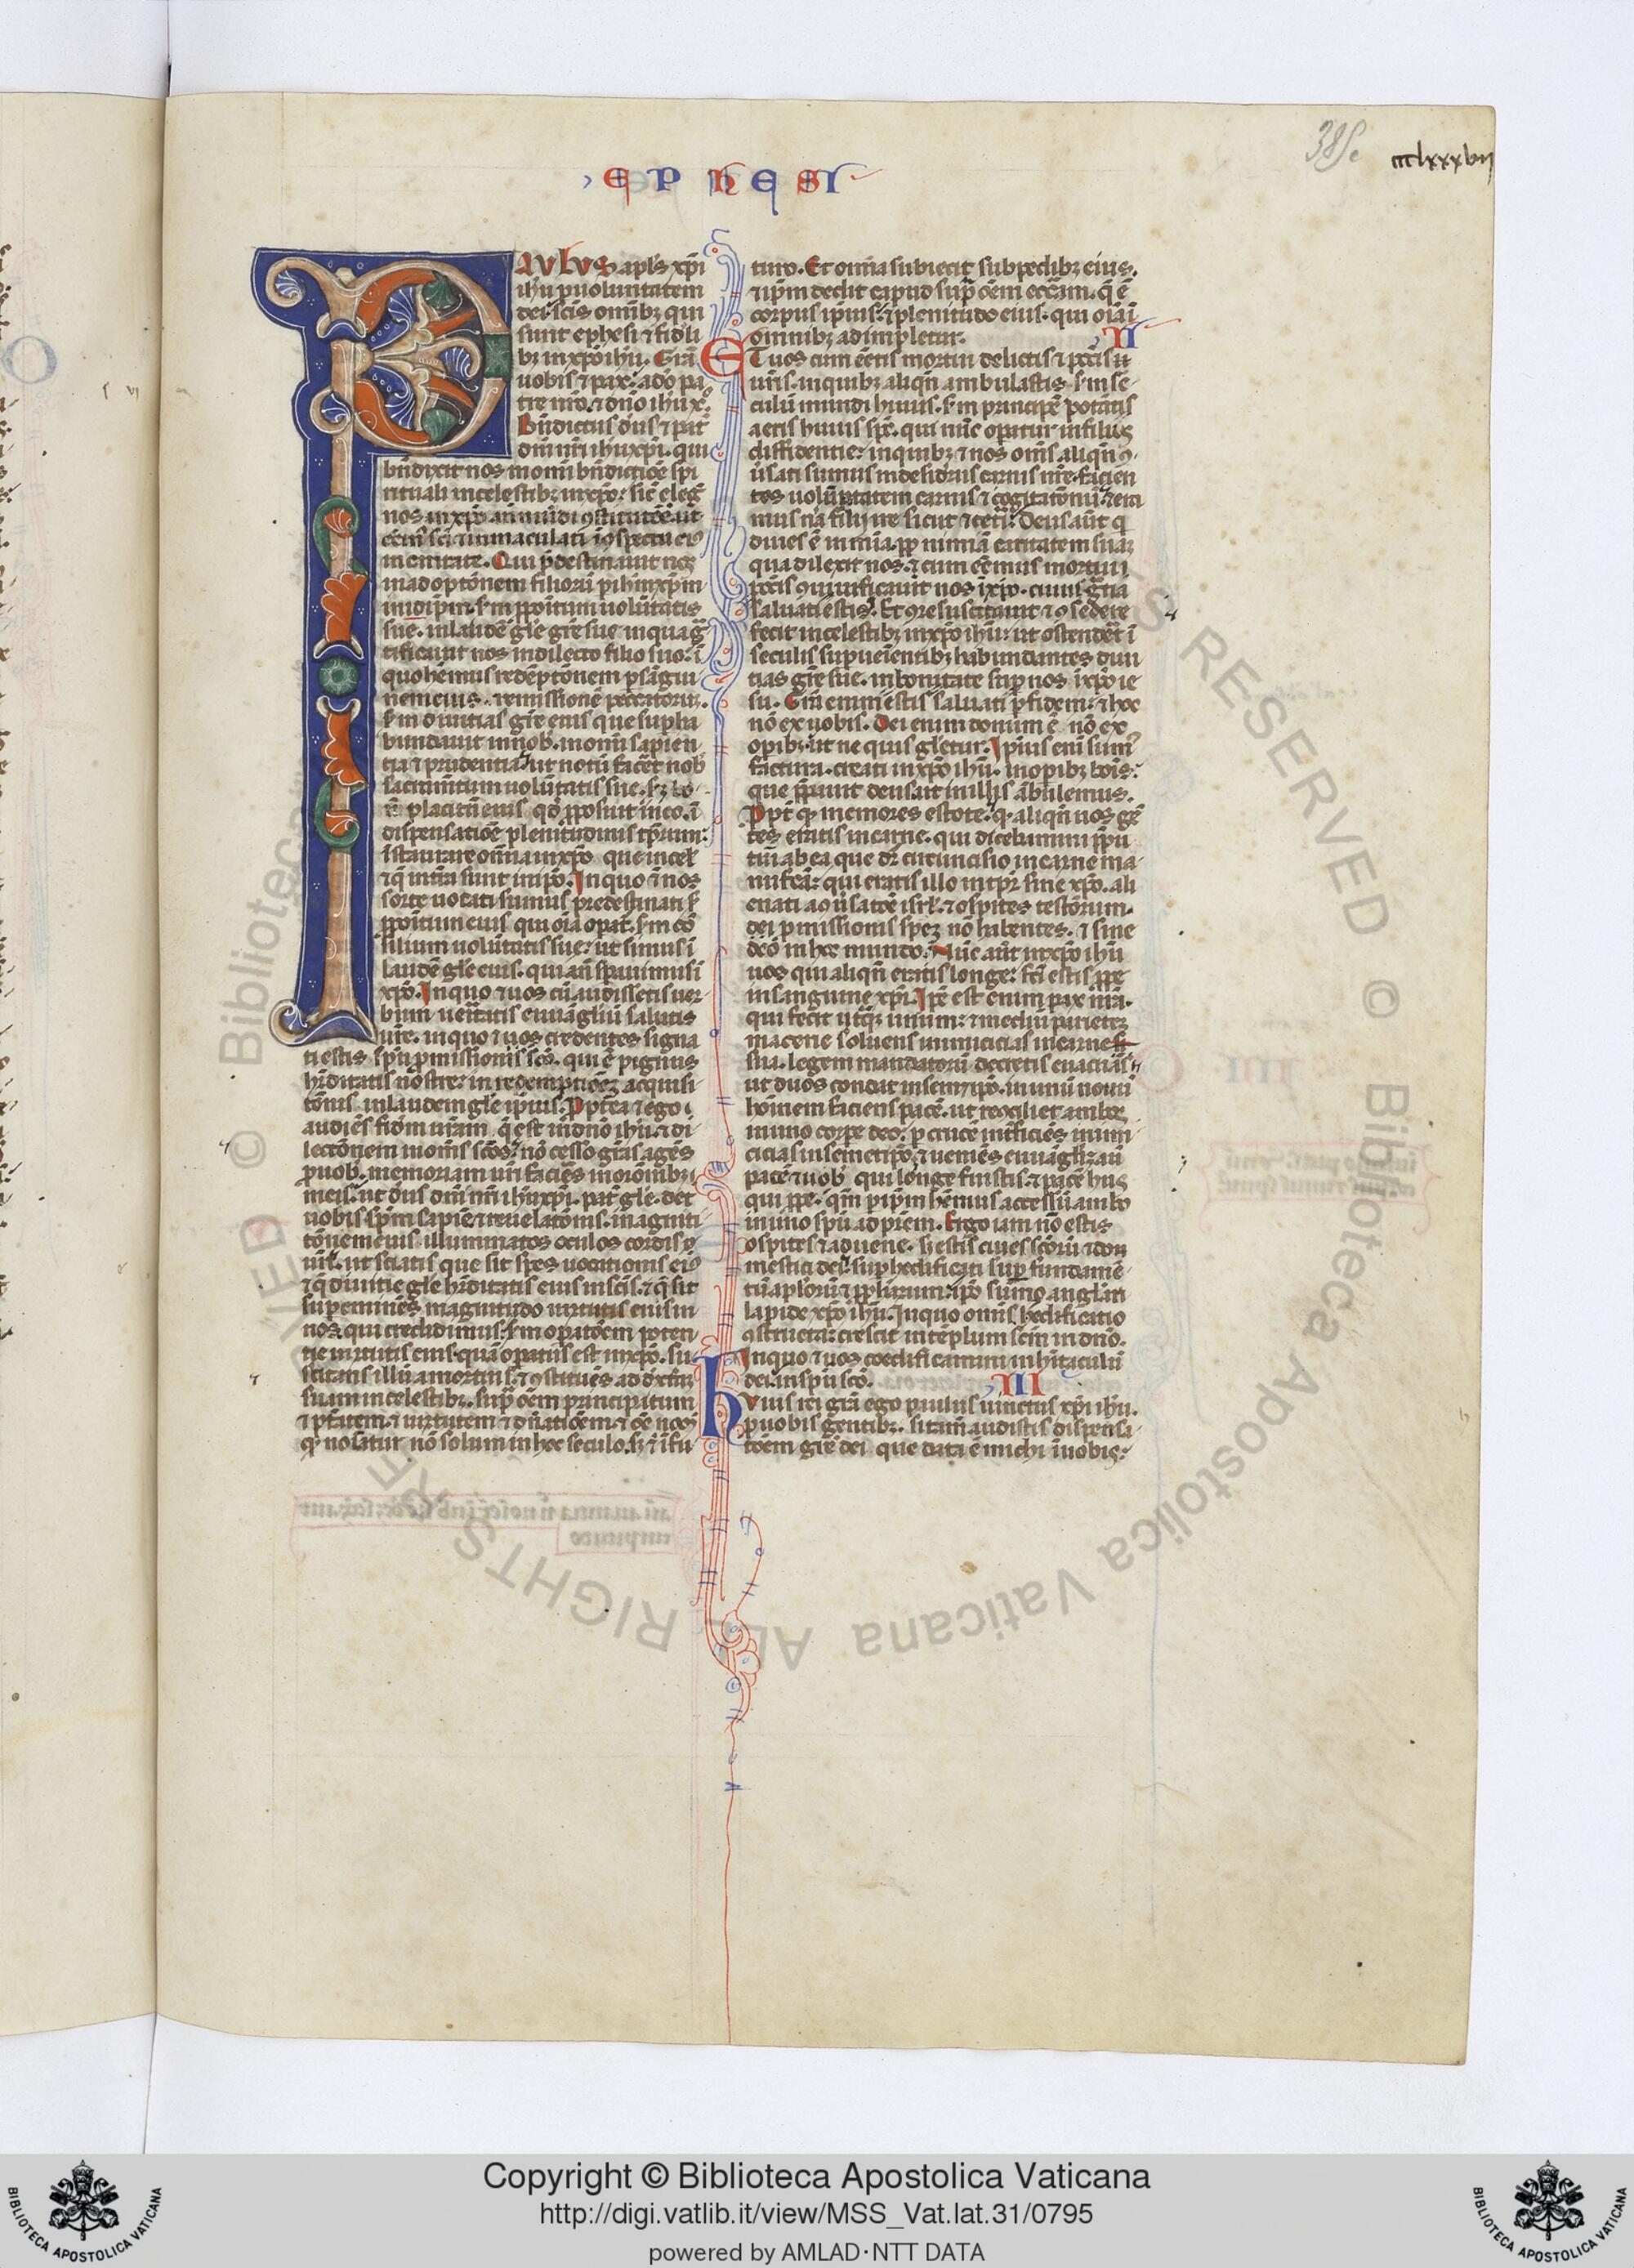 EPHESI
385
ccclxxxvii
PAVLVS apl's xp̄i
ih̄u p uoluntatem
dei. sc̄is omĩbꝫ qui
sunt ephesi ⁊ fideli
bꝫ in xp̄o ih̄u. Gr̄a
uobis ⁊ pax a dõ pa
tre nr̄o. ⁊ dn̄o ih̄u x̄.
Bñdictus ds̄ ⁊ pat̃
dn̄i nr̄i ih̄u xp̄i. qui
bñdixit nos in om̃i bñdictiõe sp̄i
rituali in celestibꝫ in xp̄o. sic̄ eleg̃
nos in xp̄o añ mũdi ꝯstitutõẽ. ut
eẽm̃ sc̄i ⁊ inmaculati ĩ ꝯspectu eiꝰ
in caritate. Qui p̃destinauit nos
in adoptõnem filioꝝ p ih̄m xp̄m
in id ip̄m. s̃m ppõitum uolũtatis
sue. in laudẽ gl̃e gr̄e sue in qua gr̄
tificauit nos in dilecto filio suo. ĩ
quo hẽmus redẽptõnem p sãgui
nem eius. remissionẽ peccatorum.
s̃m diuitias gr̄e eius que supha
bundauit in nob̃. in om̃i sapien
tia ⁊ prudentia. ut notũ facẽt nob̃
sacramtum uolũtatis sue. s̃ꝫ bo
ñ placitũ eius qd̃ pposuit in eo. ĩ
dispensatiõẽ plenitudinis tp̃rum
ĩstaurare om̃ia in xp̄o que in cel̃
⁊ q̃ in tr̃a sunt in ip̃o. In quo ⁊ nos
sorte uocati sumus predestinati s̃
ppõitum eius qui oĩa opat̃. s̃m cõ
silium uolũtatis sue. ut simus ĩ
laudẽ gl̃e eius. qui añ spauimus ĩ
xp̄o. In quo ⁊ uos cũ audissetis uer
bum ueritatis euuãgliũ salutis
ur̃e. in quo ⁊ uos credentes signa
ti estis sp̄u pmissionis sc̄o. qui ẽ pignus
h̃ditatis nostre. in redemptiõeꝫ acquisi
tõnis in laudem gl̃e ip̄ius. Ppt̃ea ⁊ ego
audiẽs fidm̃ ur̃am q̃ est in dn̄o ih̄u ⁊ di
lectõnem in om̃is sc̄os. nõ cesso gr̄as agẽs
p uob̃. memoriam ur̃i faciẽs in orõnibꝫ
meis. ut ds̄ dn̄i nr̄i ih̄u xp̄i. pat̃ gl̃e. det
uobis sp̄m sapiẽ ⁊ reuelatõnis. in agniti
tõnem eius. illuminatos oculos cordis
ur̃i. ut sciatis que sit spes uocationis eiꝰ
⁊ q̃ diuitie gl̃e h̃ditatis eius in sc̄is. ⁊ q̃ sit
supeminẽs magnitudo uirtutis eius in
nos qui credidimus. s̃m opatõem poten
tie uirtutis eius quã opatus est in xp̄o. su
scitans illũ a mortuis. ⁊ ꝯstituẽs ad dext̃m
suam in celestibꝫ. sup oẽm principatum
⁊ ptãtem. ⁊ uirtutem ⁊ dñatiõem. ⁊ oẽ nom̃
q̃ noĩatur nõ solum in hoc seculo. s̃ꝫ ⁊ ĩ fu
turo. Et om̃ia subiecit sub pedibꝫ eius.
⁊ ip̄m dedit caput sup oẽm eccl̃am. q̃ ẽ
corpus ipsius. ⁊ plenitudo eius. qui oĩa ĩ
omnibꝫ adimpletur. II
ET uos cum eẽtis mortui delictis ⁊ pc̃c̃is
ur̃is. in quibꝫ aliqñ ambulastis s̃m se
culũ mundi huius. s̃m principẽ potãtis
aeris huius sp̄c. qui nũc opatur in filios
diffidentie. in quibꝫ ⁊ nos om̃s aliqñ ꝯ
ũsati sumus in desideriis carnis nr̄e. facien
tes uolũptatem carnis ⁊ cogitatõnũ ⁊ era
mus nã filij ire sicut ⁊ ceti. Deus aũt q̃
diues ẽ in mĩa. pp nimiã caritatem suaꝫ
qua dilexit nos. ⁊ cum eẽmus mortui
pc̃c̃is ꝯuiuificauit nos ĩ xp̄o. cuius gr̄a
saluati estis. Et ꝯresuscitauit ⁊ ꝯsedere
fecit in celestibꝫ in xp̄o ih̄u. ut ostendẽt ĩ
seculis supueientibꝫ habundantes diui
tias gr̄e sue. in bonitate sup nos ĩ xp̄o ie
su. Gr̄a enim estis saluati p fidem. ⁊ hoc
nõ ex uobis. Dei enim donum ẽ nõ ex
opibꝫ. ut ne quis gl̃etur. Ipius eni sumꝰ
factura. creati in xp̄o ih̄u. in opibꝫ bõis.
que ppauit deus. ut in illis ãbulemus.
Ppt̃ q̃ memores estote. q̃ aliqñ uos gẽ
tes eratis in carne. qui dicebamini ppu
tiũ ab ea que dr̃ circumcisio in carne ma
nu fc̃a. qui eratis illo in tp̃r sine xp̄o. ali
enati a ꝯũsatõe isrl̃. ⁊ ospites testõrum.
dei pmissionis speꝫ nõ habentes. ⁊ sine
deo in hoc mundo. Nũc aũt in xp̄o ih̄u
uos qui aliqñ eratis longe. fc̃i estis ppe
in sanguine xp̄i. Ip̃e est enim pax nr̃a.
qui fecit utꝗꝫ unum. ⁊ mediũ parieteꝫ
macerie soluens inimicicias in carne
sua. legem mandatorũ decretis euacuãs
ut duos condat in semetip̃o. in unũ nouũ
hoĩem faciens pacẽ. ut recõciliet ambos
in uno corpe deo. p crucẽ int̃ficiẽs inimi
cicias in semetipõ. ⁊ ueniẽs euuãgliꝫauit
pacẽ uob̃ qui longe fuistis. ⁊ pacẽ hiis
qui ppe. qm̃ p ip̄m hẽmus accessũ ambo
in uno sp̄u ad pr̃em. Ergo iam nõ estis
ospites ⁊ aduene. s̃ estis ciues sc̄orũ ⁊ do
mestici dei. sup hedificati sup fundamẽ
tũ apl'orũ ⁊ pphãrum. ip̃o sũmo angl̃ari
lapide xp̄o ih̄u. In quo om̃is hedificatio
ꝯstructa. crescit in tẽplum sc̄m in dn̄o.
In quo ⁊ uos coedificamini in h̃itaculũ
dei. in sp̄u sc̄o. III
HVius rei gr̄a ego paulus uinctus xp̄i ih̄u.
p uobis gentibꝫ. si tam̃ audistis dispensa
tõem gr̄e dei que data ẽ michi ĩ uobis.
Copyright © Biblioteca Apostolica Vaticana
http://digi.vatlib.it/view/MSS_Vat.lat.31/0795
powered by AMLAD·NTT DATA
BIBLIOTECA APOSTOLICA VATICANA
BIBLIOTECA APOSTOLICA VATICANA
© Biblioteca Apostolica Vaticana ALL RIGHTS RESERVED